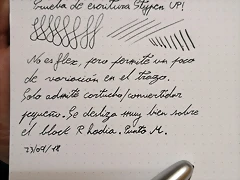 Prueba de escritura Stypen UP!
No es flex, pero permite un poco
de variación en el trazo.
Solo admite cartucho/convertidor
pequeño. Se desliza muy bien sobre
el block Rhodia. Punto M.
23/09/18